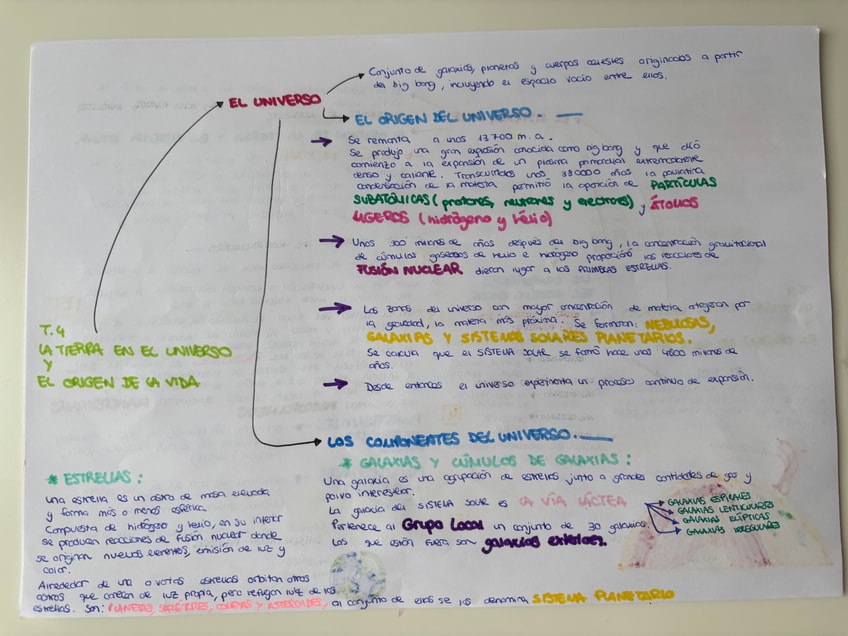 EL UNIVERSO
Conjunto de galaxias, planetas y cuerpos celestes originados a partir
del big bang, incluyendo el espacio vacío entre ellos.
EL ORIGEN DEL UNIVERSO.
Se remonta a unos 13700 m.a.
Se produjo una gran explosión conocida como big bang y que dió
comienzo a la expansión de un plasma primordial extremadamente
denso y caliente. Transcurridos unos 38000 años la paulatina
condensación de la materia permitió la aparición de PARTÍCULAS
SUBATÓMICAS (protones, neutrones y electrones) y ÁTOMOS
LIGEROS (hidrógeno y helio)
Unos 300 millones de años después del big bang, la concentración gravitacional
de cúmulos gaseosos de helio e hidrógeno propiciónó las reacciones de
FUSIÓN NUCLEAR dieron lugar a las PRIMERAS ESTRELLAS.
Las zonas del universo con mayor concentración de materia atrajeron por
la gravedad, la materia más próxima. Se formaron: NEBULOSAS,
GALAXIAS Y SISTEMAS SOLARES PLANETARIOS.
Se calcula que el SISTEMA SOLAR se formó hace unos 4600 millones de
años.
Desde entonces el universo experimenta un proceso continuo de expansión.
T.4
LA TIERRA EN EL UNIVERSO
Y
EL ORIGEN DE LA VIDA
LOS COMPONENTES DEL UNIVERSO.
* GALAXIAS Y CÚMULOS DE GALAXIAS:
Una galaxia es una agrupación de estrellas junto a grandes cantidades de gas y
polvo interestelar.
La galaxia del SISTEMA SOLAR es LA VÍA LÁCTEA
Pertenece al Grupo Local un conjunto de 30 galaxias.
Las que están fuera son galaxias exteriores.
GALAXIAS ESPIRALES
GALAXIAS LENTICULARES
GALAXIAS ELÍPTICAS
GALAXIAS IRREGULARES
* ESTRELLAS:
Una estrella es un astro de masa elevada
y forma más o menos esférica.
Compuesta de hidrógeno y helio, en su interior
se producen reacciones de fusión nuclear donde
se originan nuevos elementos, emisión de luz y
calor.
Alrededor de una o varias estrellas orbitan otros
astros que carecen de luz propia, pero reflejan luz de las
estrellas. Son: PLANETAS, SATÉLITES, COMETAS Y ASTEROIDES, al conjunto de ellos se les denomina SISTEMA PLANETARIO